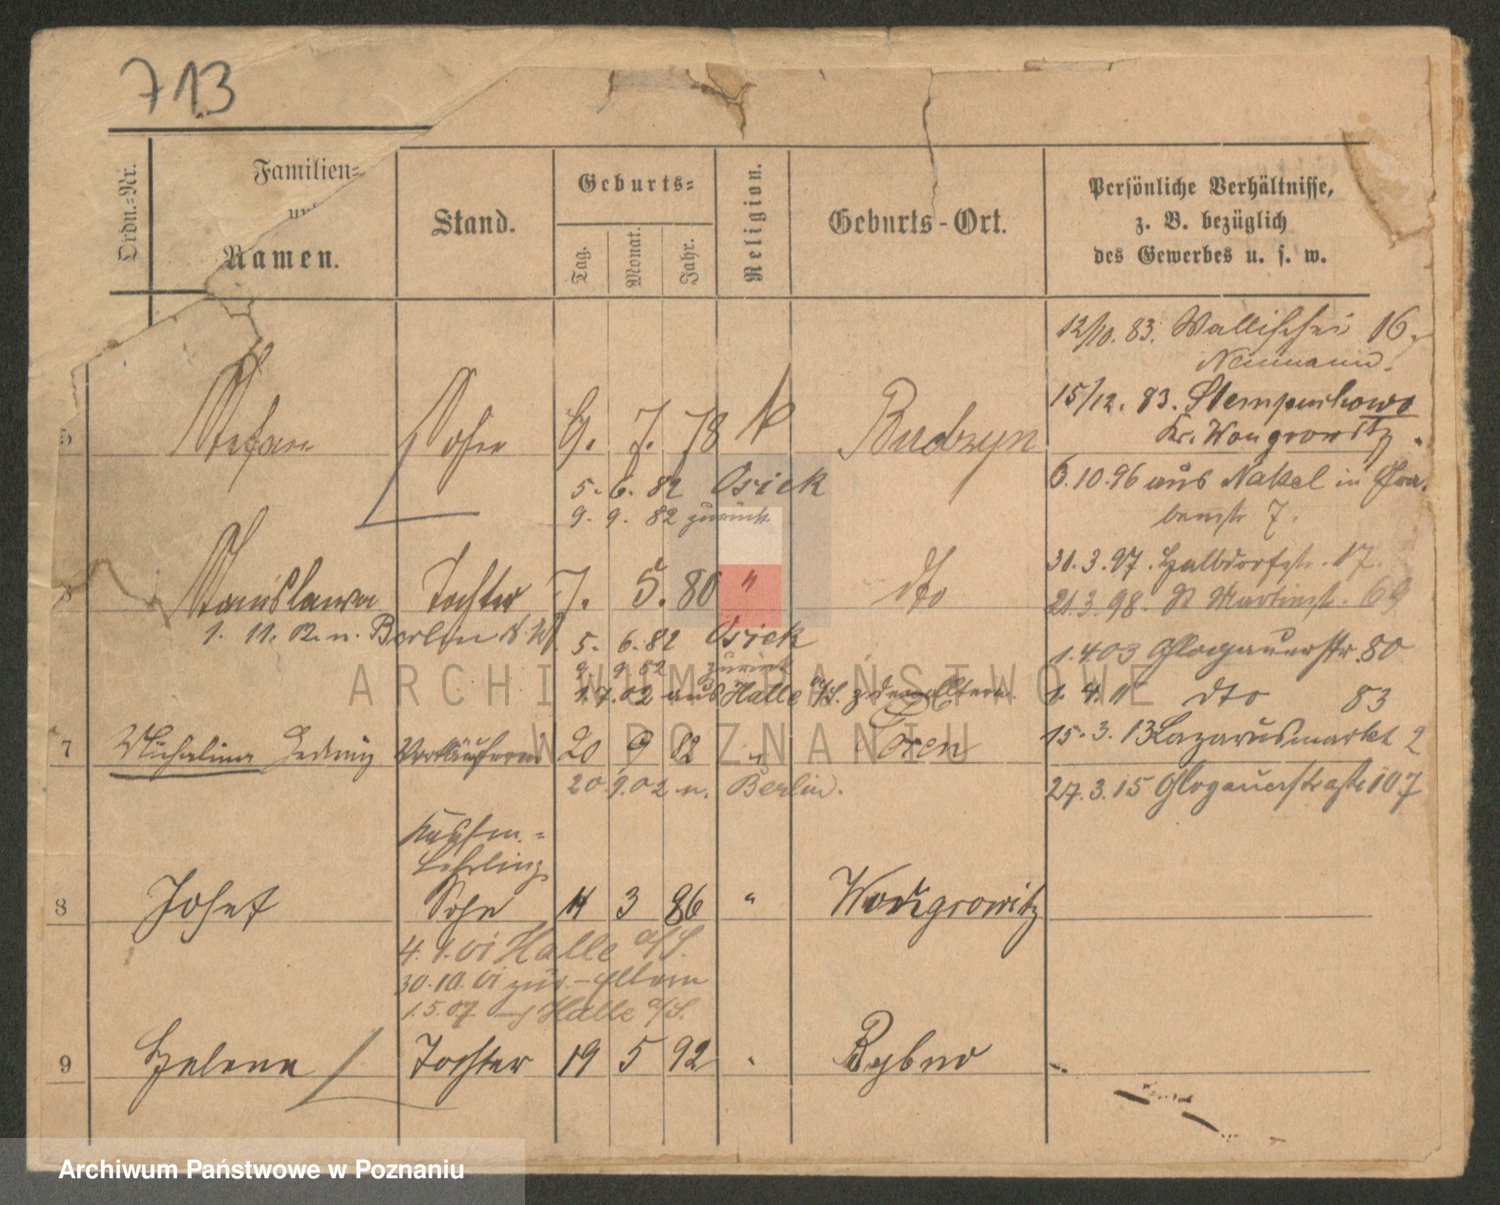 713
Ordn.-Nr.
Familien-
und
Namen.
Stand.
Geburts-
Tag.
Monat.
Jahr.
Religion.
Geburts-Ort.
Persönliche Verhältnisse,
z. B. bezüglich
des Gewerbes u. s. w.
12/10. 83. Wallischei 16.
Neumann.
15/12. 83. Stempuchowo
Kr. Wongrowitz.
5 Stefan Sohn 9. 7. 78 k Budzyn
5. 6. 82 Osiek
9. 9. 82 zurück
6.10.96 aus Nakel in Gra-
benstr 7.
31.3.97. Halbdorfstr. 17.
Stanislawa Tochter 7. 5. 80 " dto
21.3.98. St Martinstr. 69
1. 11. 02. n. Berlin
5. 6. 82 Osiek
9. 9. 82 zurück
1.4.03 Glogauerstr. 80
1.7.02 aus Halle a/S. z. den Eltern
1. 4. 11 dto 83
7 Michalina Hedwig Verkäuferin 20 9 82 " Exen
15. 3. 13 Lazarusmarkt 2
20. 9. 02 n. Berlin.
27. 3. 15 Glogauerstraße 107
Kaufm.-
Lehrling
8 Josef Sohn 14 3 86 " Wongrowitz
4. 1. 01 Halle a/S.
30. 10. 01 zur. Eltern
1. 5. 07 Halle a/S.
9 Helene Tochter 19 5 92 " Rybno
ARCHIWUM PAŃSTWOWE
W POZNANIU
Archiwum Państwowe w Poznaniu